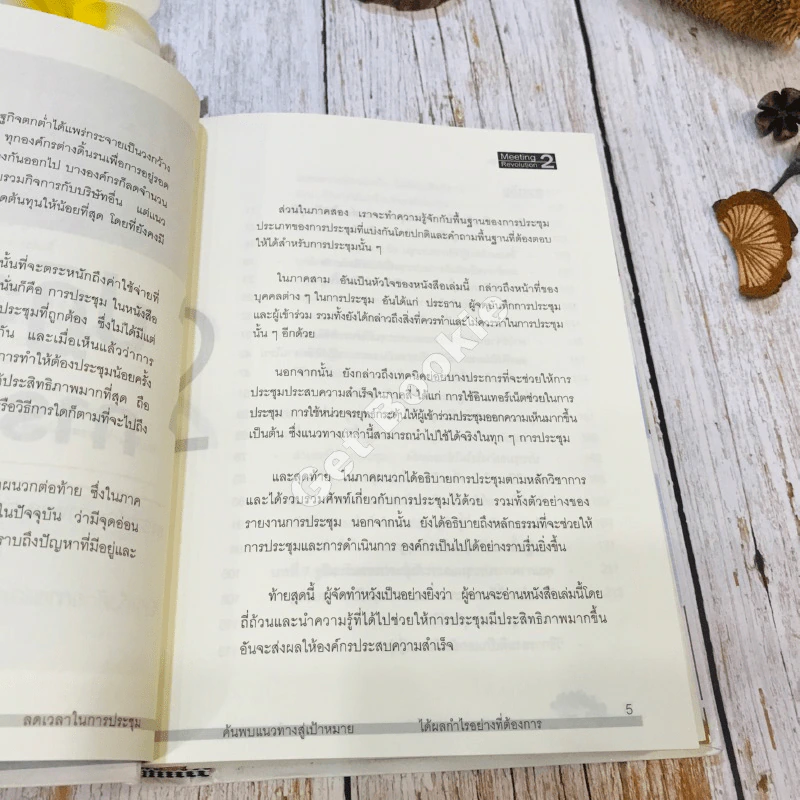 ฐกิจตกต่ำได้แพร่กระจายเป็นวงกว้าง
ทุกองค์กรต่างดิ้นรนเพื่อการอยู่รอด
งกันออกไป บางองค์กรก็ลดจำนวน
บรวมกิจการกับบริษัทอื่น แต่แนว
ดต้นทุนให้น้อยที่สุด โดยที่ยังคงมี
นั้นที่จะตระหนักถึงค่าใช้จ่ายที่
นั่นก็คือ การประชุม ในหนังสือ
ประชุมที่ถูกต้อง ซึ่งไม่ได้มีแต่
กัน และเมื่อเห็นแล้วว่าการ
การทำให้ต้องประชุมน้อยครั้ง
ประสิทธิภาพมากที่สุด ถือ
รือวิธีการใดก็ตามที่จะไปถึง
าผนวกต่อท้าย ซึ่งในภาค
ในปัจจุบัน ว่ามีจุดอ่อน
ราบถึงปัญหาที่มีอยู่และ
ลดเวลาในการประชุม
Meeting
Revolution 2
ส่วนในภาคสอง เราจะทำความรู้จักกับพื้นฐานของการประชุม
ประเภทของการประชุมที่แบ่งกันโดยปกติและคำถามพื้นฐานที่ต้องตอบ
ให้ได้สำหรับการประชุมนั้น ๆ
ในภาคสาม อันเป็นหัวใจของหนังสือเล่มนี้ กล่าวถึงหน้าที่ของ
บุคคลต่าง ๆ ในการประชุม อันได้แก่ ประธาน ผู้จดบันทึกการประชุม
และผู้เข้าร่วม รวมทั้งยังได้กล่าวถึงสิ่งที่ควรทำและไม่ควรทำในการประชุม
นั้น ๆ อีกด้วย
นอกจากนั้น ยังกล่าวถึงเทคนิคย่อยบางประการที่จะช่วยให้การ
ประชุมประสบความสำเร็จในภาคสี่ ได้แก่ การใช้อินเทอร์เน็ตช่วยในการ
ประชุม การใช้หน่วยจรยุทธ์กระตุ้นให้ผู้เข้าร่วมประชุมออกความเห็นมากขึ้น
เป็นต้น ซึ่งแนวทางเหล่านี้สามารถนำไปใช้ได้จริงในทุก ๆ การประชุม
และสุดท้าย ในภาคผนวกได้อธิบายการประชุมตามหลักวิชาการ
และได้รวบรวมศัพท์เกี่ยวกับการประชุมไว้ด้วย รวมทั้งตัวอย่างของ
รายงานการประชุม นอกจากนั้น ยังได้อธิบายถึงหลักธรรมที่จะช่วยให้
การประชุมและการดำเนินการ องค์กรเป็นไปได้อย่างราบรื่นยิ่งขึ้น
ท้ายสุดนี้ ผู้จัดทำหวังเป็นอย่างยิ่งว่า ผู้อ่านจะอ่านหนังสือเล่มนี้โดย
ถี่ถ้วนและนำความรู้ที่ได้ไปช่วยให้การประชุมมีประสิทธิภาพมากขึ้น
อันจะส่งผลให้องค์กรประสบความสำเร็จ
5
ค้นพบแนวทางสู่เป้าหมาย ได้ผลกำไรอย่างที่ต้องการ
Get Bookie